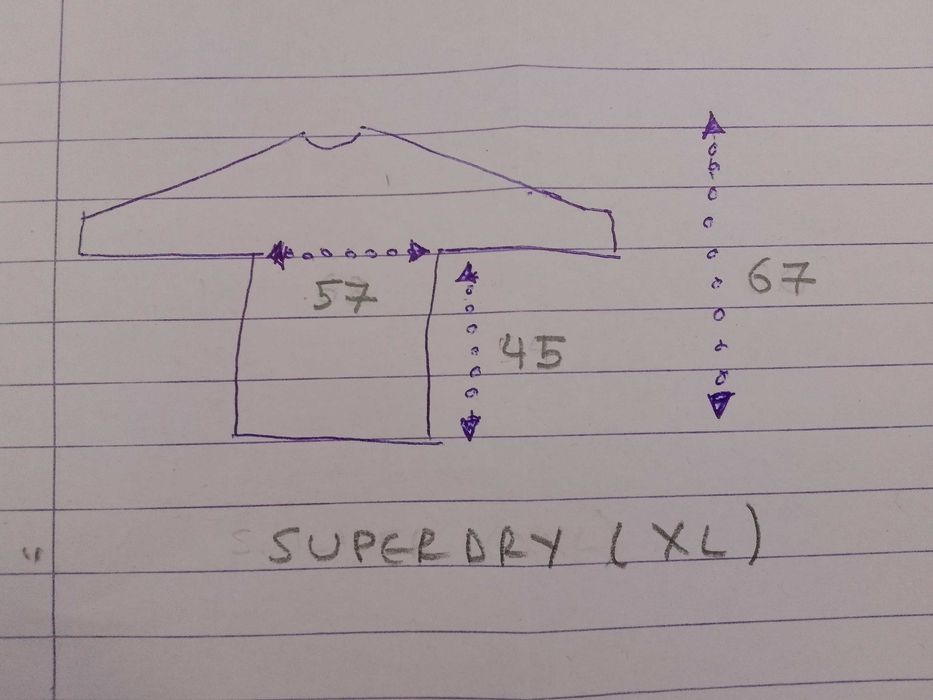 67
57
45
" SUPERDRY (XL)